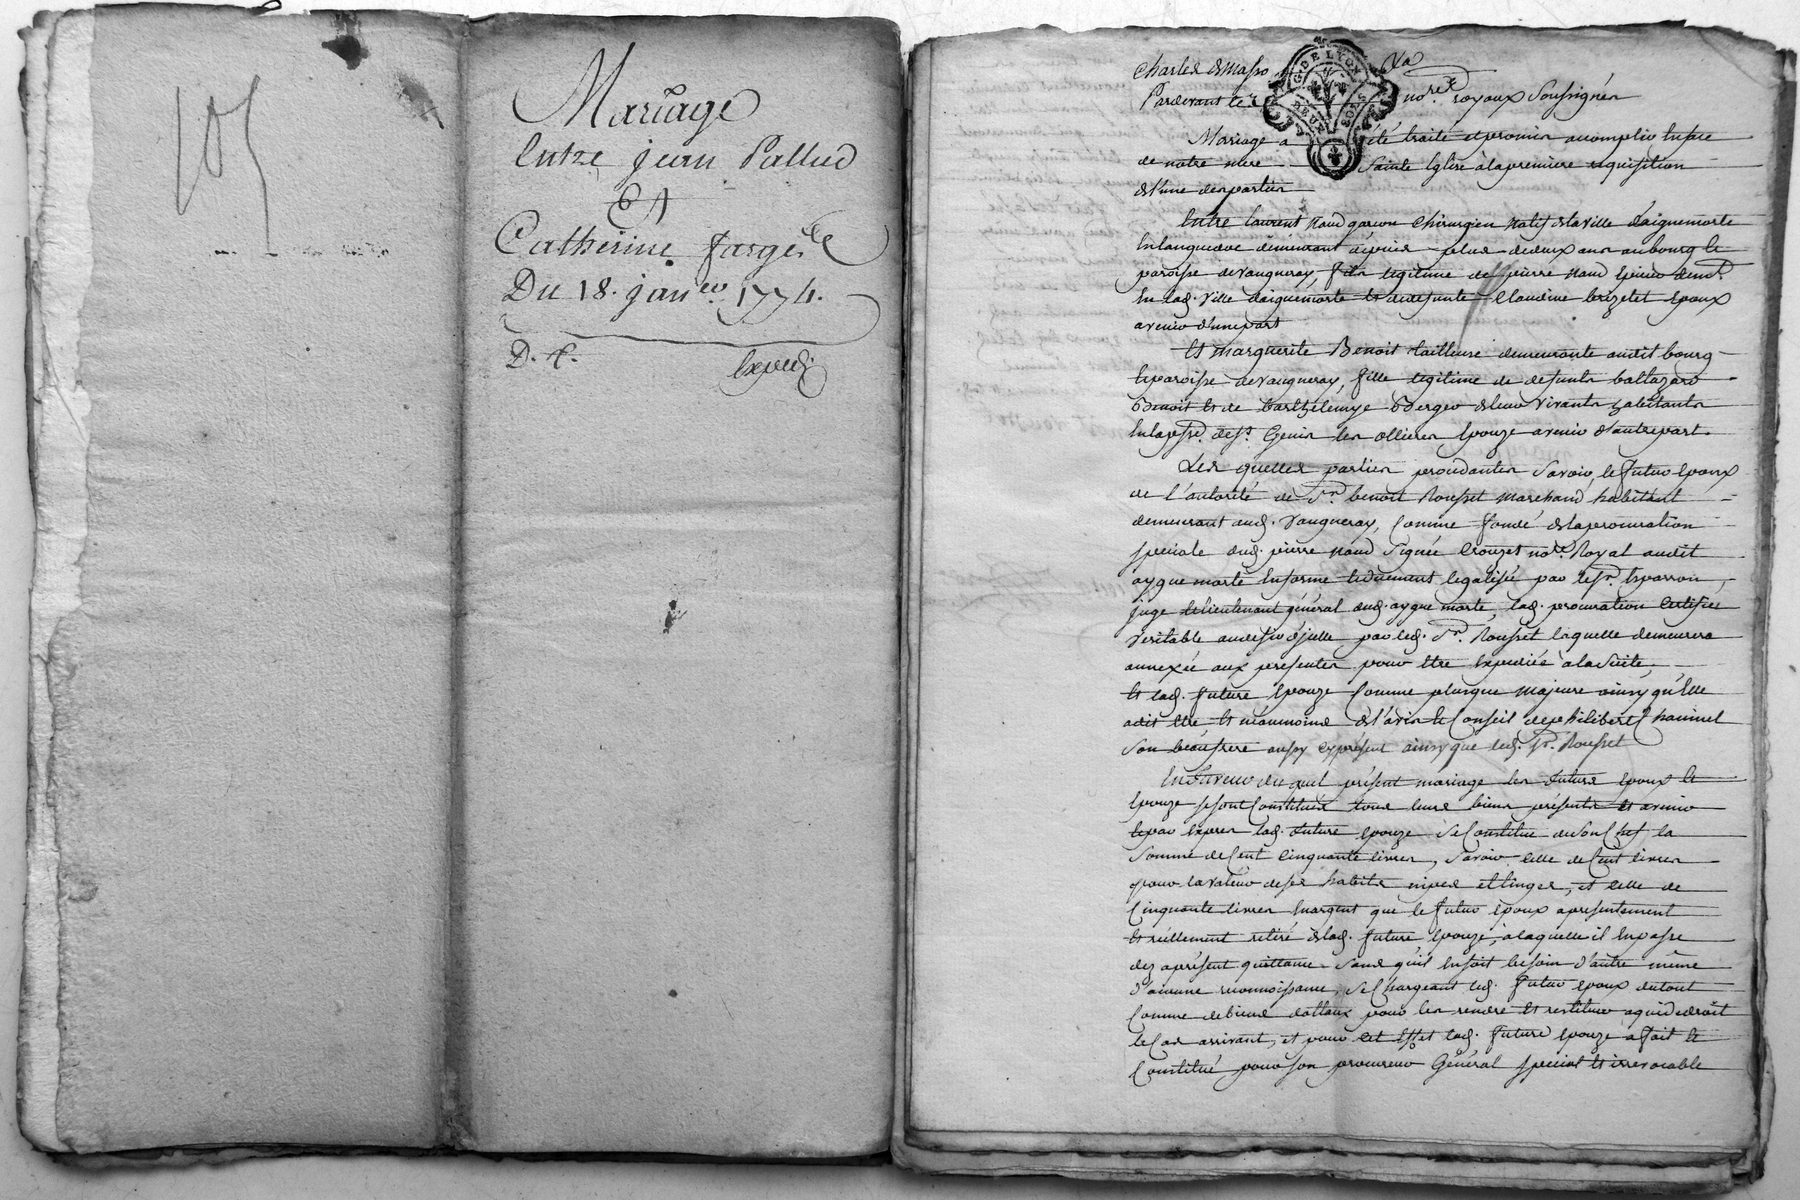 105
Mariage
Entre jean Pallud
Et
Catherine fargere
Du 18. janver 1774.
D. C.
Expedié
Charles
G. DE LYON
DEUX SOLS
Pardevant les no.res royaux soussignés
Mariage a été traité et promis accomplir en face
de notre mere Sainte Eglise à la premiere requisition
de l'une des parties
Entre laurent naud garçon chirurgien natif de la ville d'aiguemorte
en languedoc demeurant depuis plus de deux ans au bourg et
paroisse de vaugneray, fils legitime de pierre naud
en lad. ville d'aiguemorte et de defunte Claudine époux
avenir d'une part
Et marguerite Benoit tailleuse demeurante audit bourg
et paroisse de vaugneray, fille legitime de defunts baltazard
Benoit et de barthelemye Berger de leur vivants habitants
en la psse. de st. Genis les ollieres epouze avenir d'autre part.
Les quelles parties procedantes savoir, le futur epoux
de l'autorité de Sr. benoit Rousset marchand habitant
demeurant aud. vaugneray, comme fondé de la procuration
speciale dud. pierre naud signée Crouzet nore. Royal audit
aygue morte en forme et duement legalisée par le sr. Esparron
juge et lieutenant général aud. aygue morte, lad. procuration certifiée
veritable par led. Sr. Rousset laquelle demeurera
annexée aux presentes pour etre expediée à la suite,
Et lad. future epouze comme plusque majeure ainsy qu'elle
a dit etre et neanmoins de l'avis et Conseil de philibert
son beaufrere aussy cy présent ainsy que led. Sr. Rousset
En faveur du quel présent mariage les futurs epoux et
epouze se sont Constitués tous leurs biens présents et avenir
et par exprès lad. future epouze se Constitue de son Chef la
somme de Cent cinquante livres, savoir celle de Cent livres
pour la valeur de ses habits nipes et linges, et celle de
Cinquante livres en argent que le futur epoux a presentement
et réellement retiré de lad. future epouze, à laquelle il en passe
dez apresent quittance sans qu'il en soit besoin d'autre même
d'aucune reconnoissance, se Chargeant led. futur epoux du tout
Comme de biens dottaux pour les rendre et restituer a qui de droit
le Cas arrivant, et pour cet effet lad. future epouze a fait et
Constitué pour son procureur Général special et irrevocable